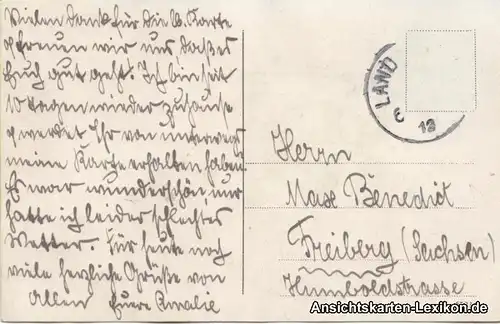 Vielen Dank für die lb. Karte
freuen wir uns, daß es
Euch gut geht. Ich bin seit
10 Tagen wieder zuhause
werdet Ihr von unterwegs
meine Karte erhalten haben.
Es war wunderschön, nur
hatte ich leider schlechtes
Wetter. Für heute noch
viele herzliche Grüße von
Allen Euere Amalie
LAND
12
Herrn
Max Benedict
Freiberg (Sachsen)
Humboldstrasse
Ansichtskarten-Lexikon.de